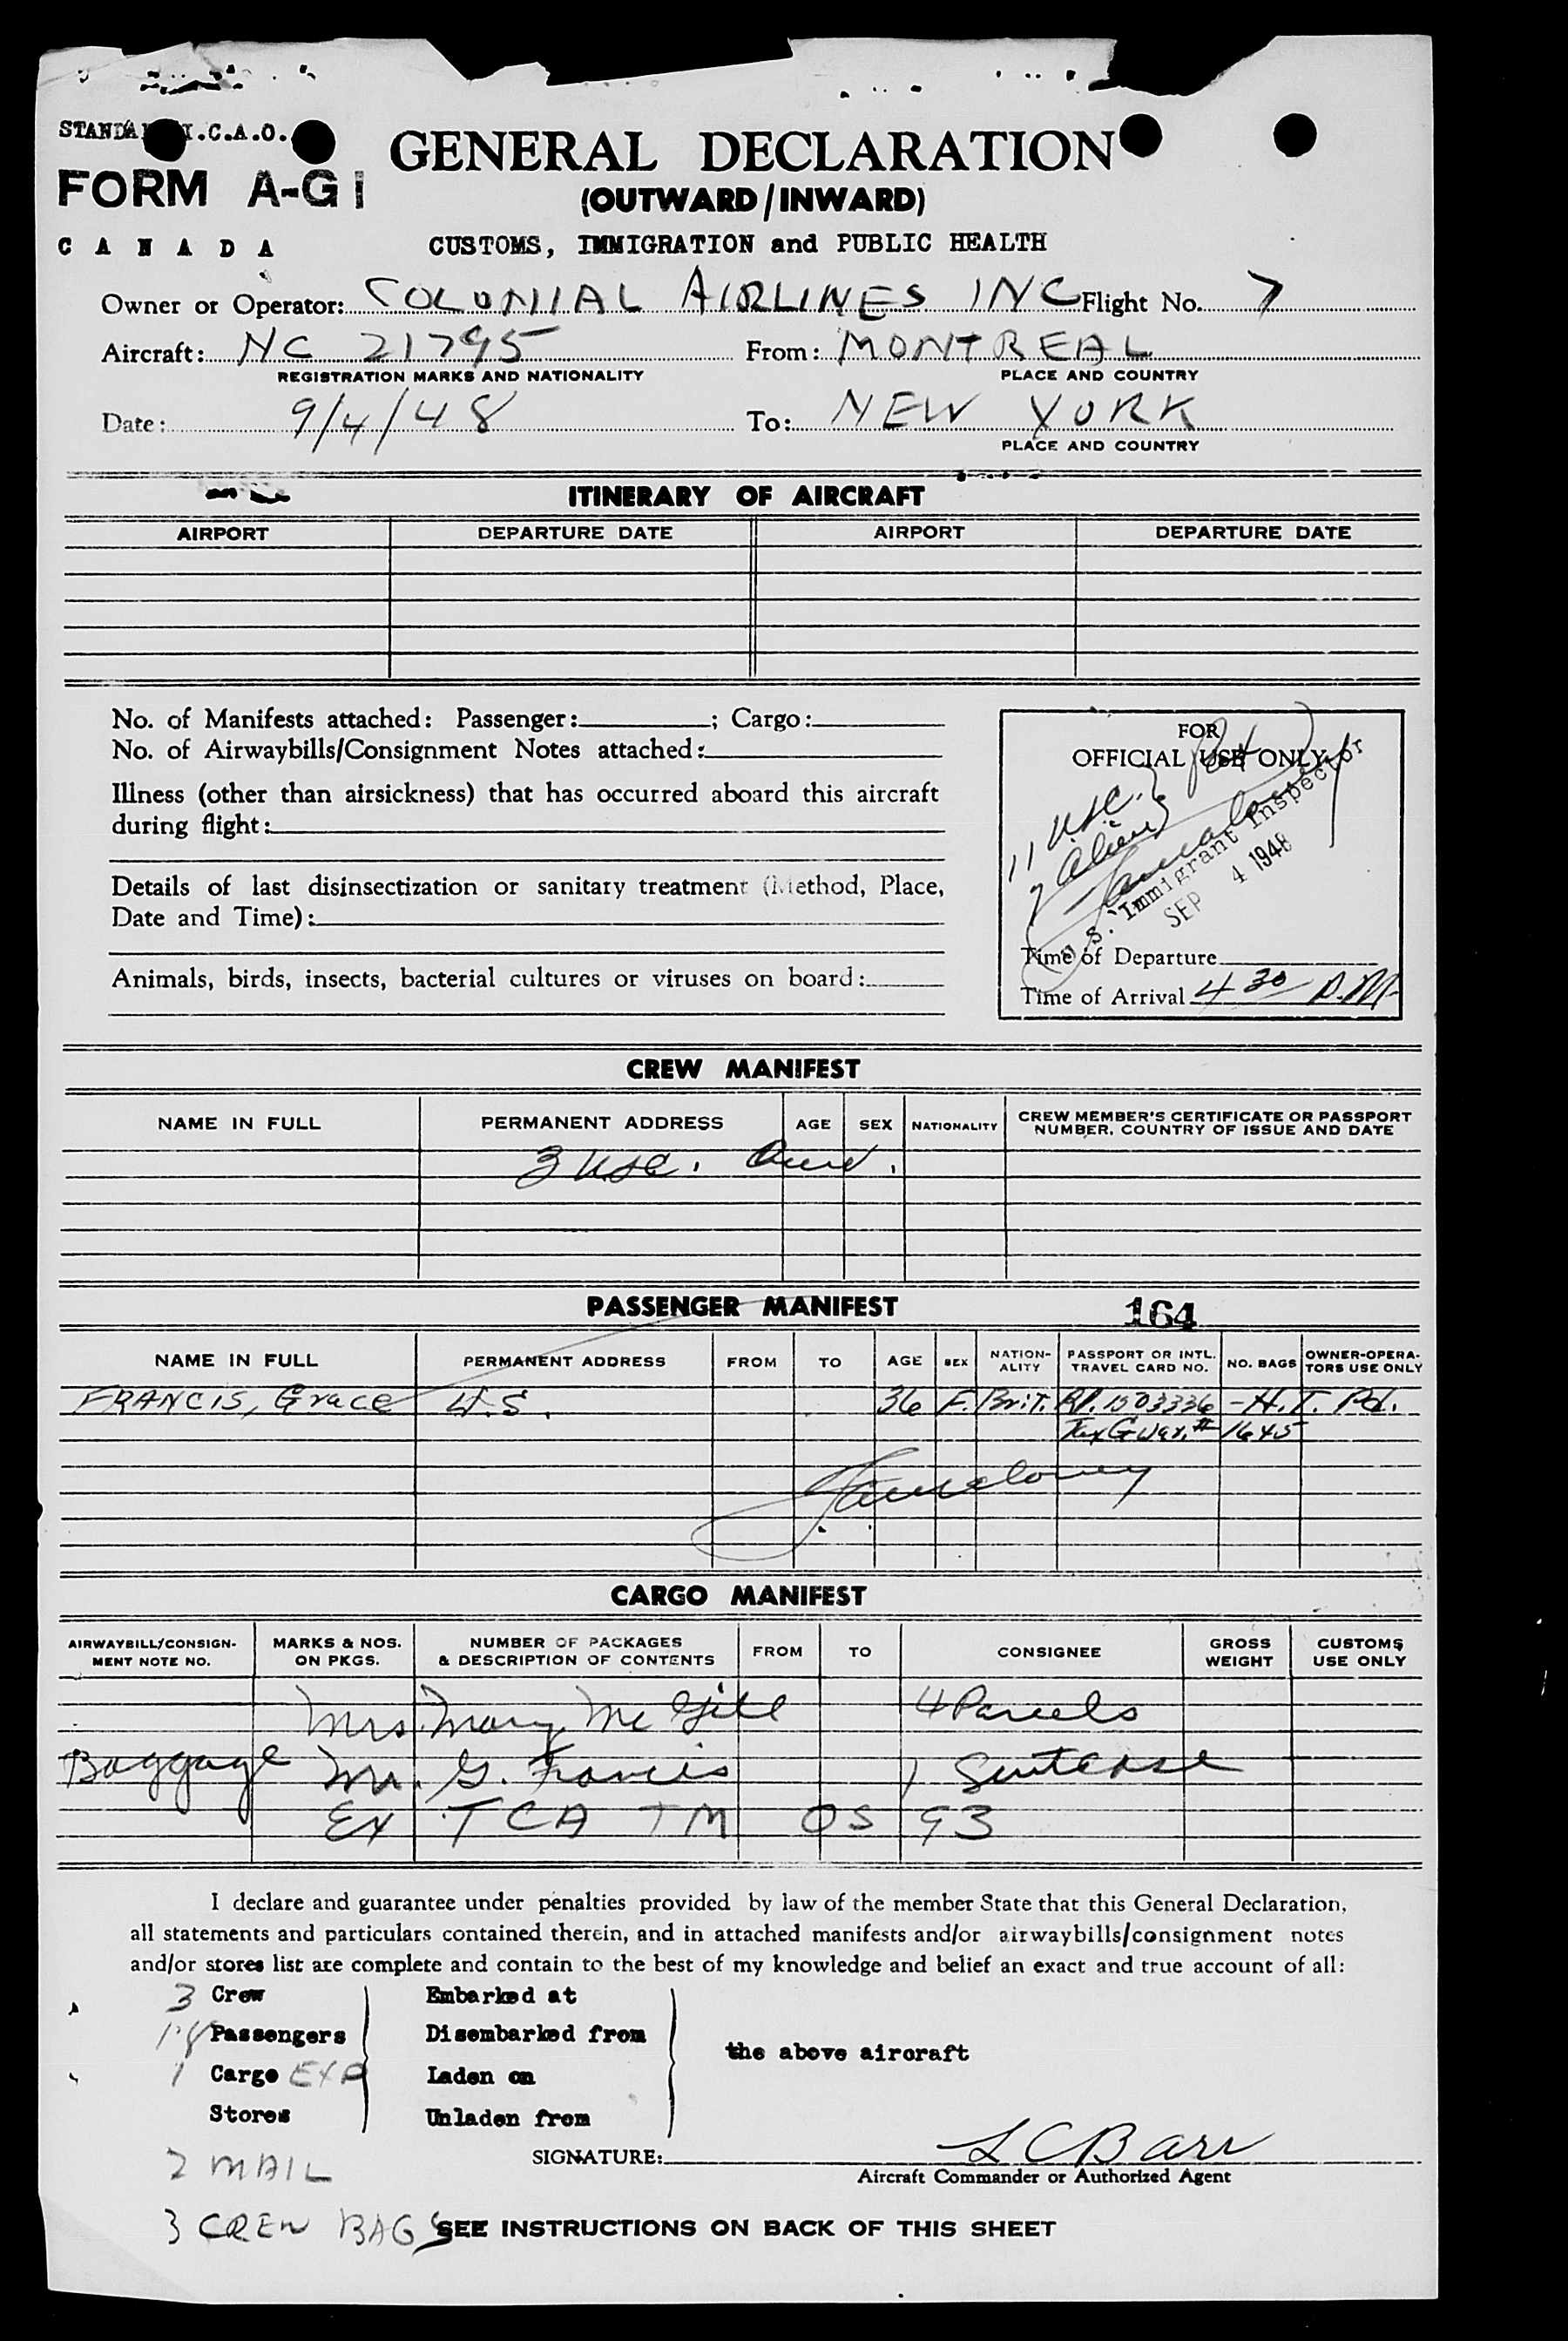 STANDA I.C.A.O.
FORM A-G1
GENERAL DECLARATION
(OUTWARD/INWARD)
CANADA
CUSTOMS, IMMIGRATION and PUBLIC HEALTH
Owner or Operator: COLONIAL AIRLINES INC Flight No. 7
Aircraft: NC 21795 From: MONTREAL
REGISTRATION MARKS AND NATIONALITY PLACE AND COUNTRY
Date: 9/4/48 To: NEW YORK
PLACE AND COUNTRY
ITINERARY OF AIRCRAFT
AIRPORT DEPARTURE DATE AIRPORT DEPARTURE DATE
No. of Manifests attached: Passenger: ; Cargo:
No. of Airwaybills/Consignment Notes attached:
Illness (other than airsickness) that has occurred aboard this aircraft
during flight:
Details of last disinsectization or sanitary treatment (Method, Place,
Date and Time):
Animals, birds, insects, bacterial cultures or viruses on board:
FOR
OFFICIAL USE ONLY
11 USC.
7 alien
U.S. Immigrant Inspector
SEP 4 1948
Time of Departure
Time of Arrival 4 30 P.M.
CREW MANIFEST
NAME IN FULL PERMANENT ADDRESS AGE SEX NATIONALITY CREW MEMBER'S CERTIFICATE OR PASSPORT
NUMBER, COUNTRY OF ISSUE AND DATE
3 USC.
PASSENGER MANIFEST 164
NAME IN FULL PERMANENT ADDRESS FROM TO AGE SEX NATION-
ALITY PASSPORT OR INTL.
TRAVEL CARD NO. NO. BAGS OWNER-OPERA-
TORS USE ONLY
FRANCIS, Grace U.S. 36 F. Brit. RP. 1503336 - H.T. Pd.
Tax Guar. # 1645
CARGO MANIFEST
AIRWAYBILL/CONSIGN-
MENT NOTE NO. MARKS & NOS.
ON PKGS. NUMBER OF PACKAGES
& DESCRIPTION OF CONTENTS FROM TO CONSIGNEE GROSS
WEIGHT CUSTOMS
USE ONLY
Mrs. Mary McGill 4 Parcels
Baggage Mr. G. Francis 1 Suitcase
Ex TCA TM OS 93
I declare and guarantee under penalties provided by law of the member State that this General Declaration,
all statements and particulars contained therein, and in attached manifests and/or airwaybills/consignment notes
and/or stores list are complete and contain to the best of my knowledge and belief an exact and true account of all:
3 Crew Embarked at
18 Passengers Disembarked from
the above aircraft
1 Cargo EXP Laden on
Stores Unladen from
2 MAIL
SIGNATURE: L C Barr
Aircraft Commander or Authorized Agent
3 CREW BAGS SEE INSTRUCTIONS ON BACK OF THIS SHEET